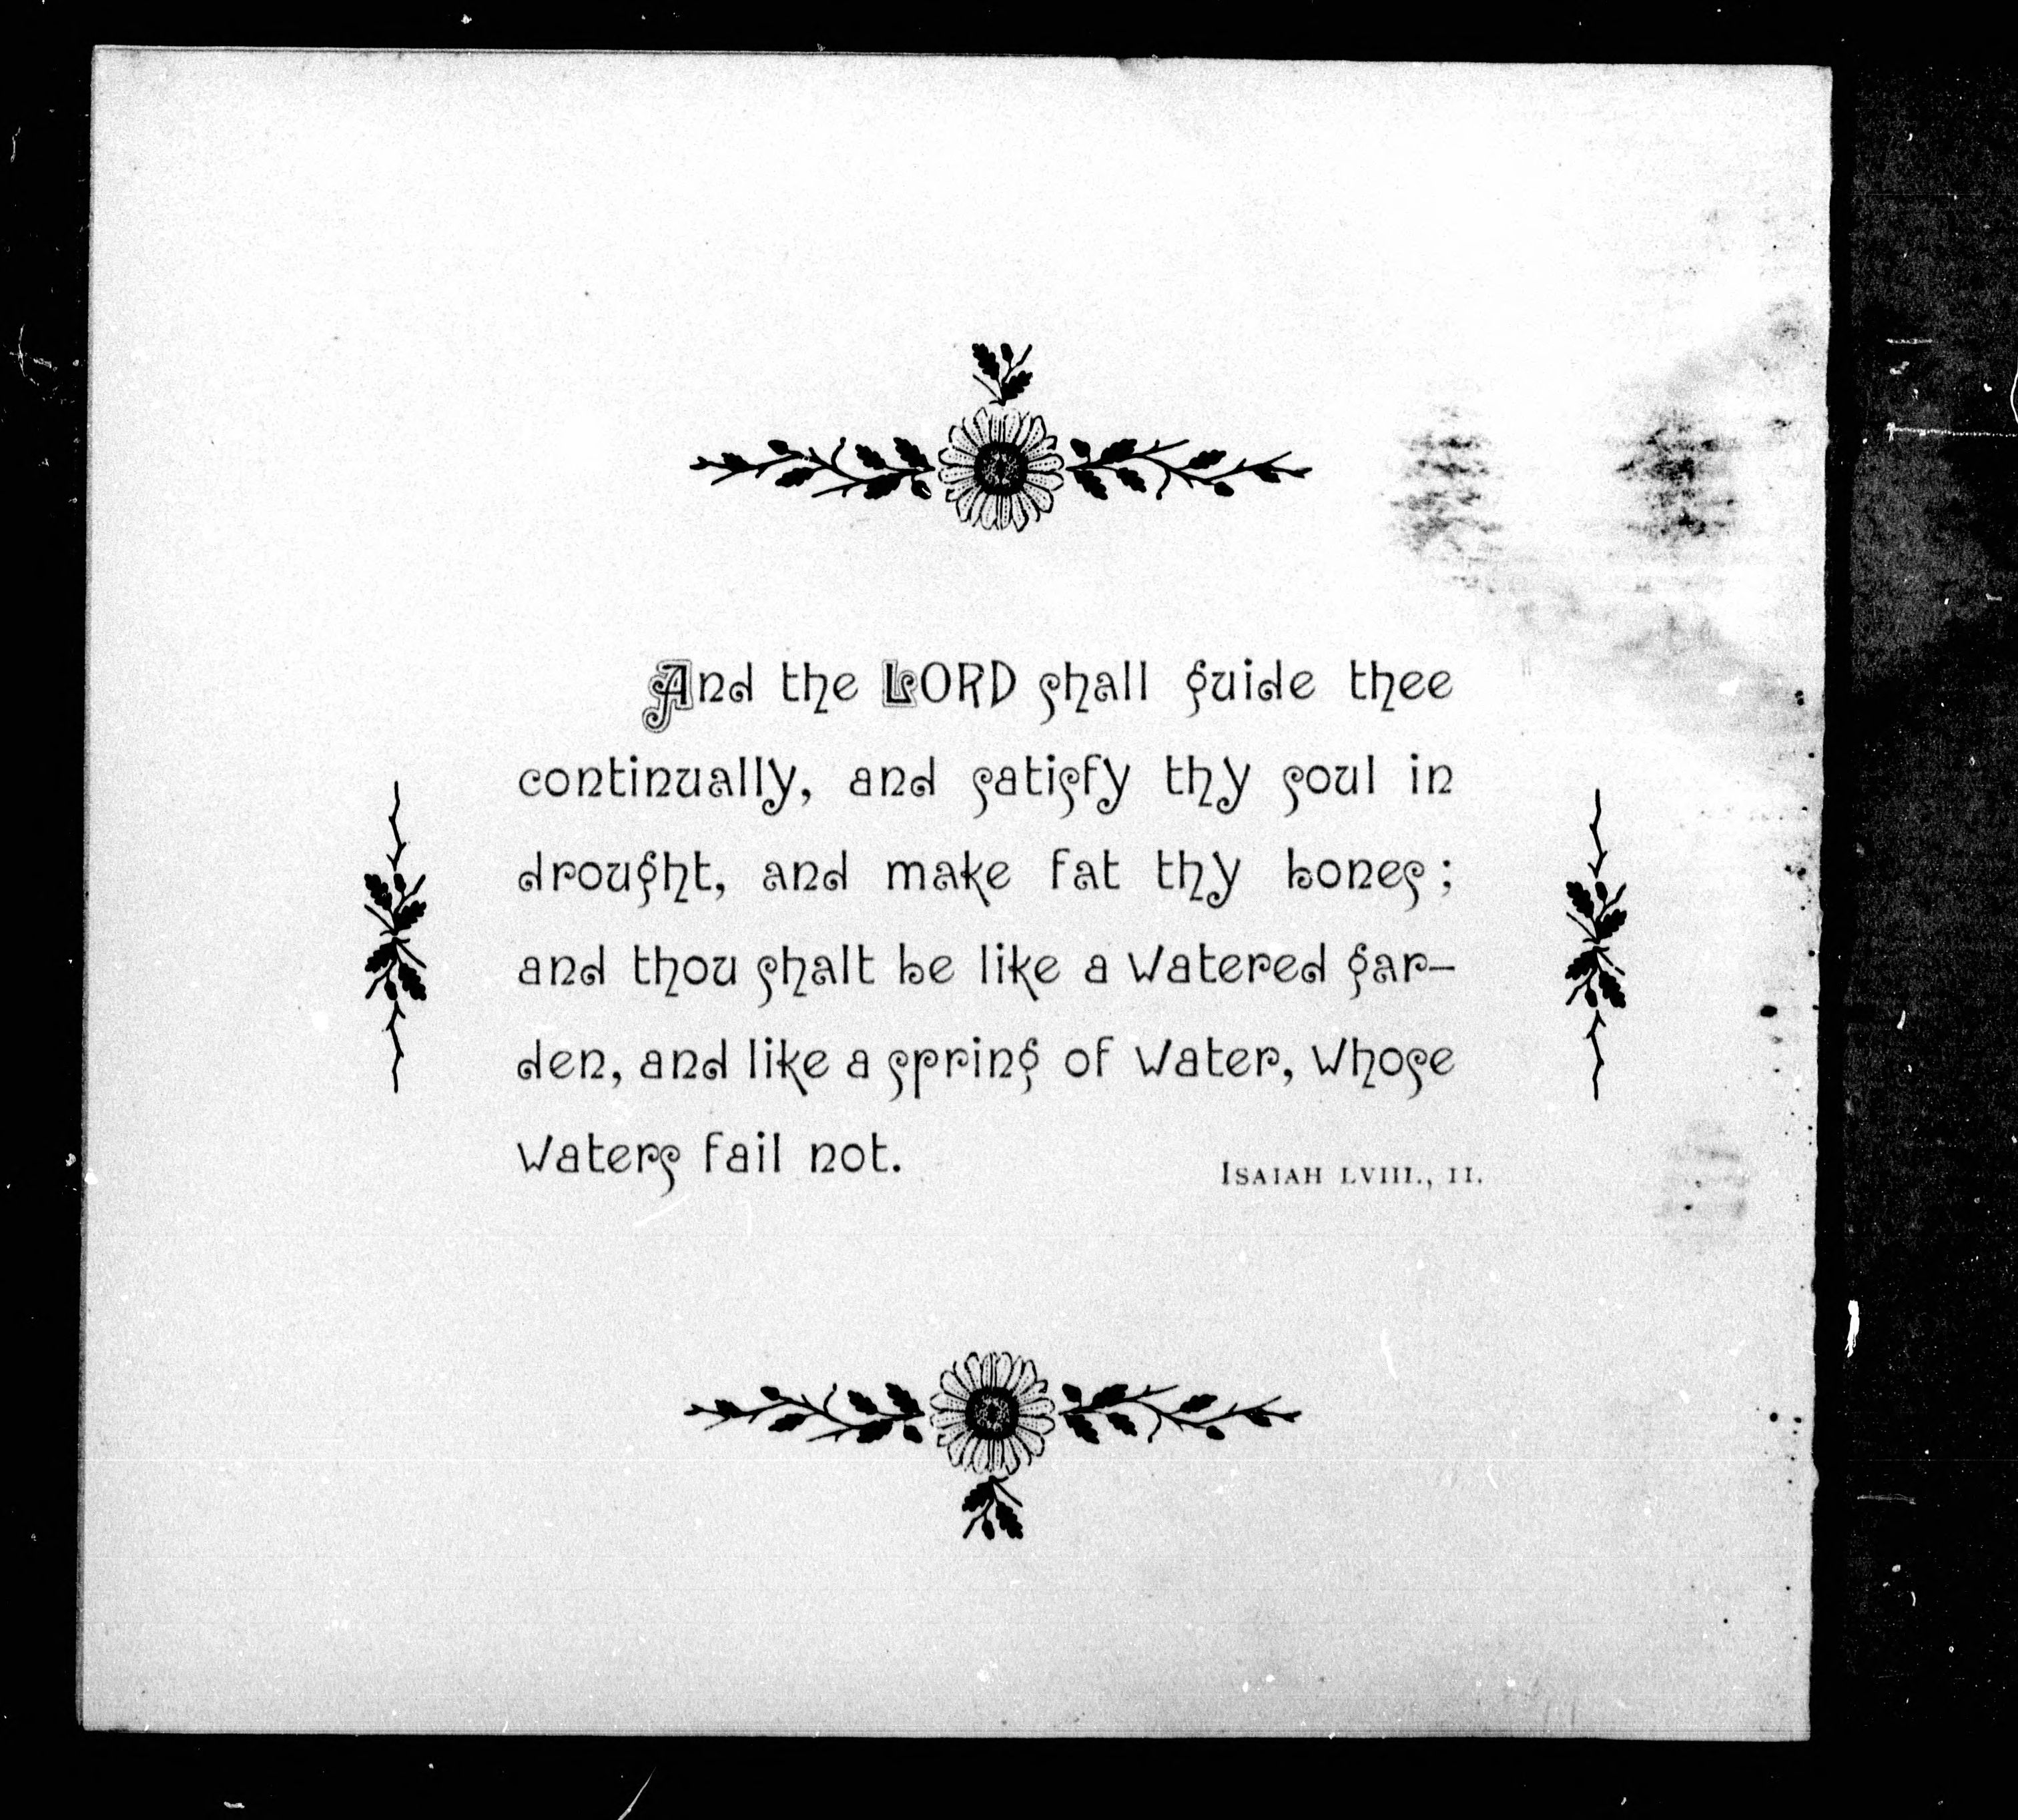 And the LORD shall guide thee
continually, and satisfy thy soul in
drought, and make fat thy bones;
and thou shalt be like a watered gar-
den, and like a spring of water, whose
waters fail not.
ISAIAH LVIII., 11.